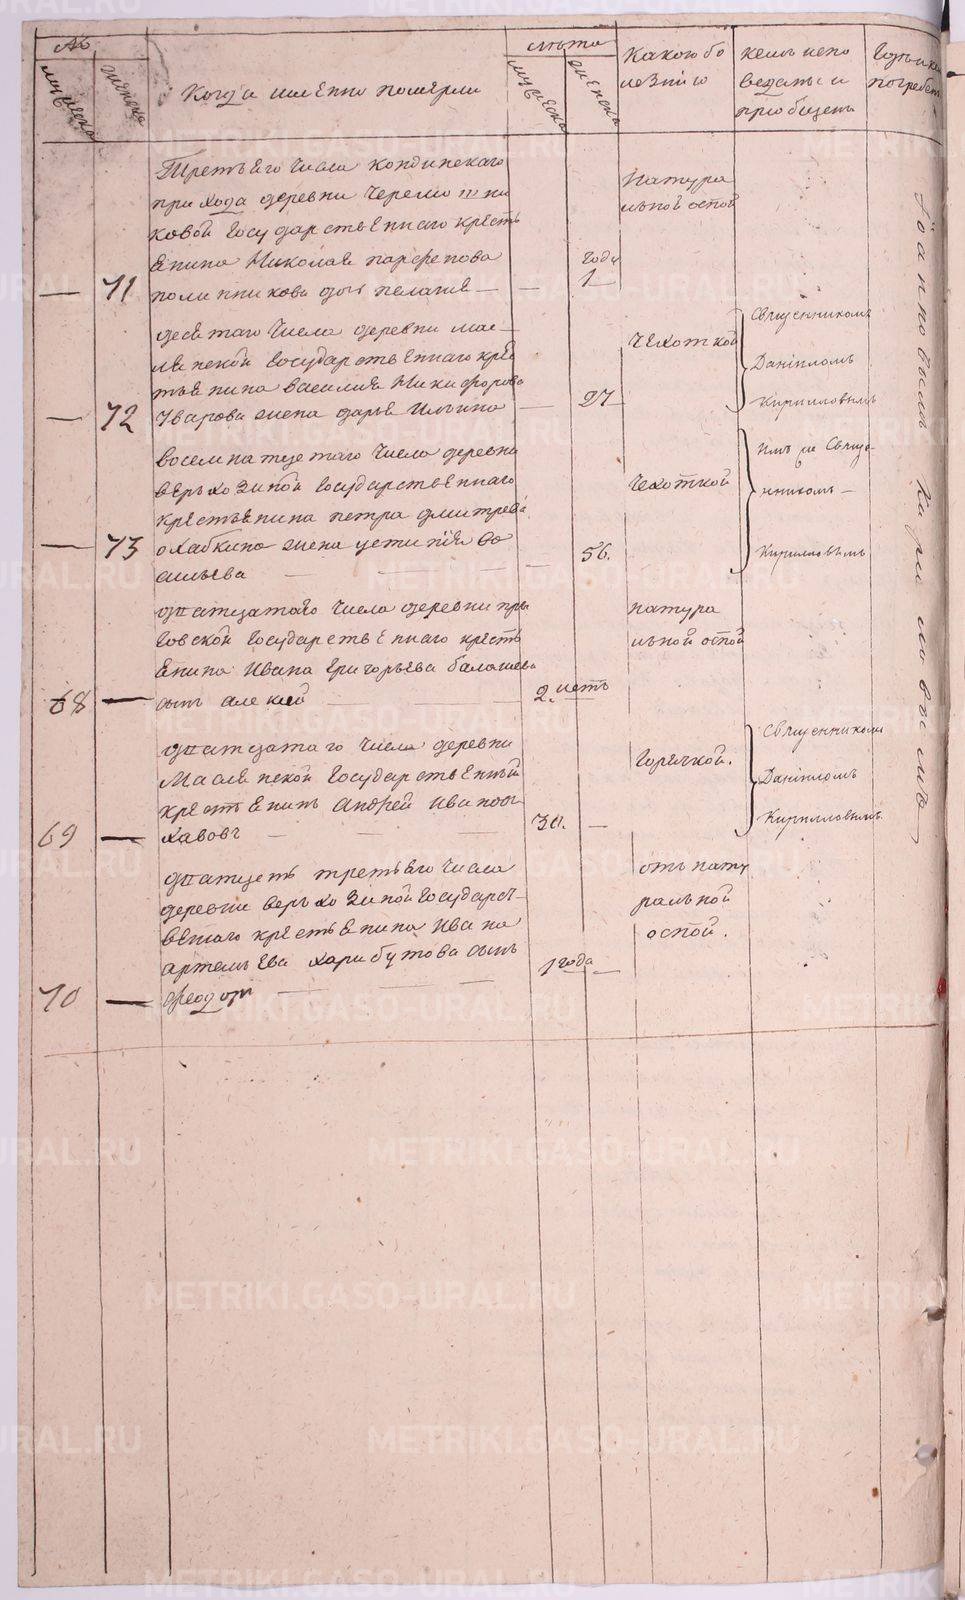 №
мужеска
женска
Когда имЕнно померли
лѣта
мужеска
женска
Какою бо
лезнiю
кемъ испо
веданы и
приобщены
погребены
Третьего числа кондинскаго
прихода деревни
ковой Государственнаго кресть
Енина Николая парфенова
дочь пелагия —
— 71 — 1
года
Натура
льной оспой
десятаго числа деревни мас—
лянской Государственнаго кре
стьЕнина василия Никифорова
Уварова жена дарья Ильина
— 72 — 27
Чехоткой
Священникомъ
Данiиломъ
Кирилловымъ
восемнатцетаго числа деревни
верхозиной Государственнаго
крестьЕнина петра дмитрева
охабкина жена устинiя ва
сильева
— 73 — 56.
Чехоткой
Имъ же Свяще-
нникомъ —
Кирилловымъ
дватцатаго числа деревни
Государственнаго кресть
Енина Ивана григорьева балашева
сынъ алексей
68 — 2. летъ
натура
льной оспой
дватцатаго числа деревни
Маслянской Государственный
крестьЕнинъ Андрей Ивановъ
69 — 30. —
Горячкой.
Священникомъ
Данiиломъ
Кирилловымъ
дватцеть третьего числа
деревни верхозиной Государст—
веннаго крестьЕнина Ивана
артемьева харибутова сынъ
феодотъ
70 — 1 года —
отъ нату
ральной
оспой.
Iоанновымъ Кирилловымъ
METRIKI.GASO-URAL.RU